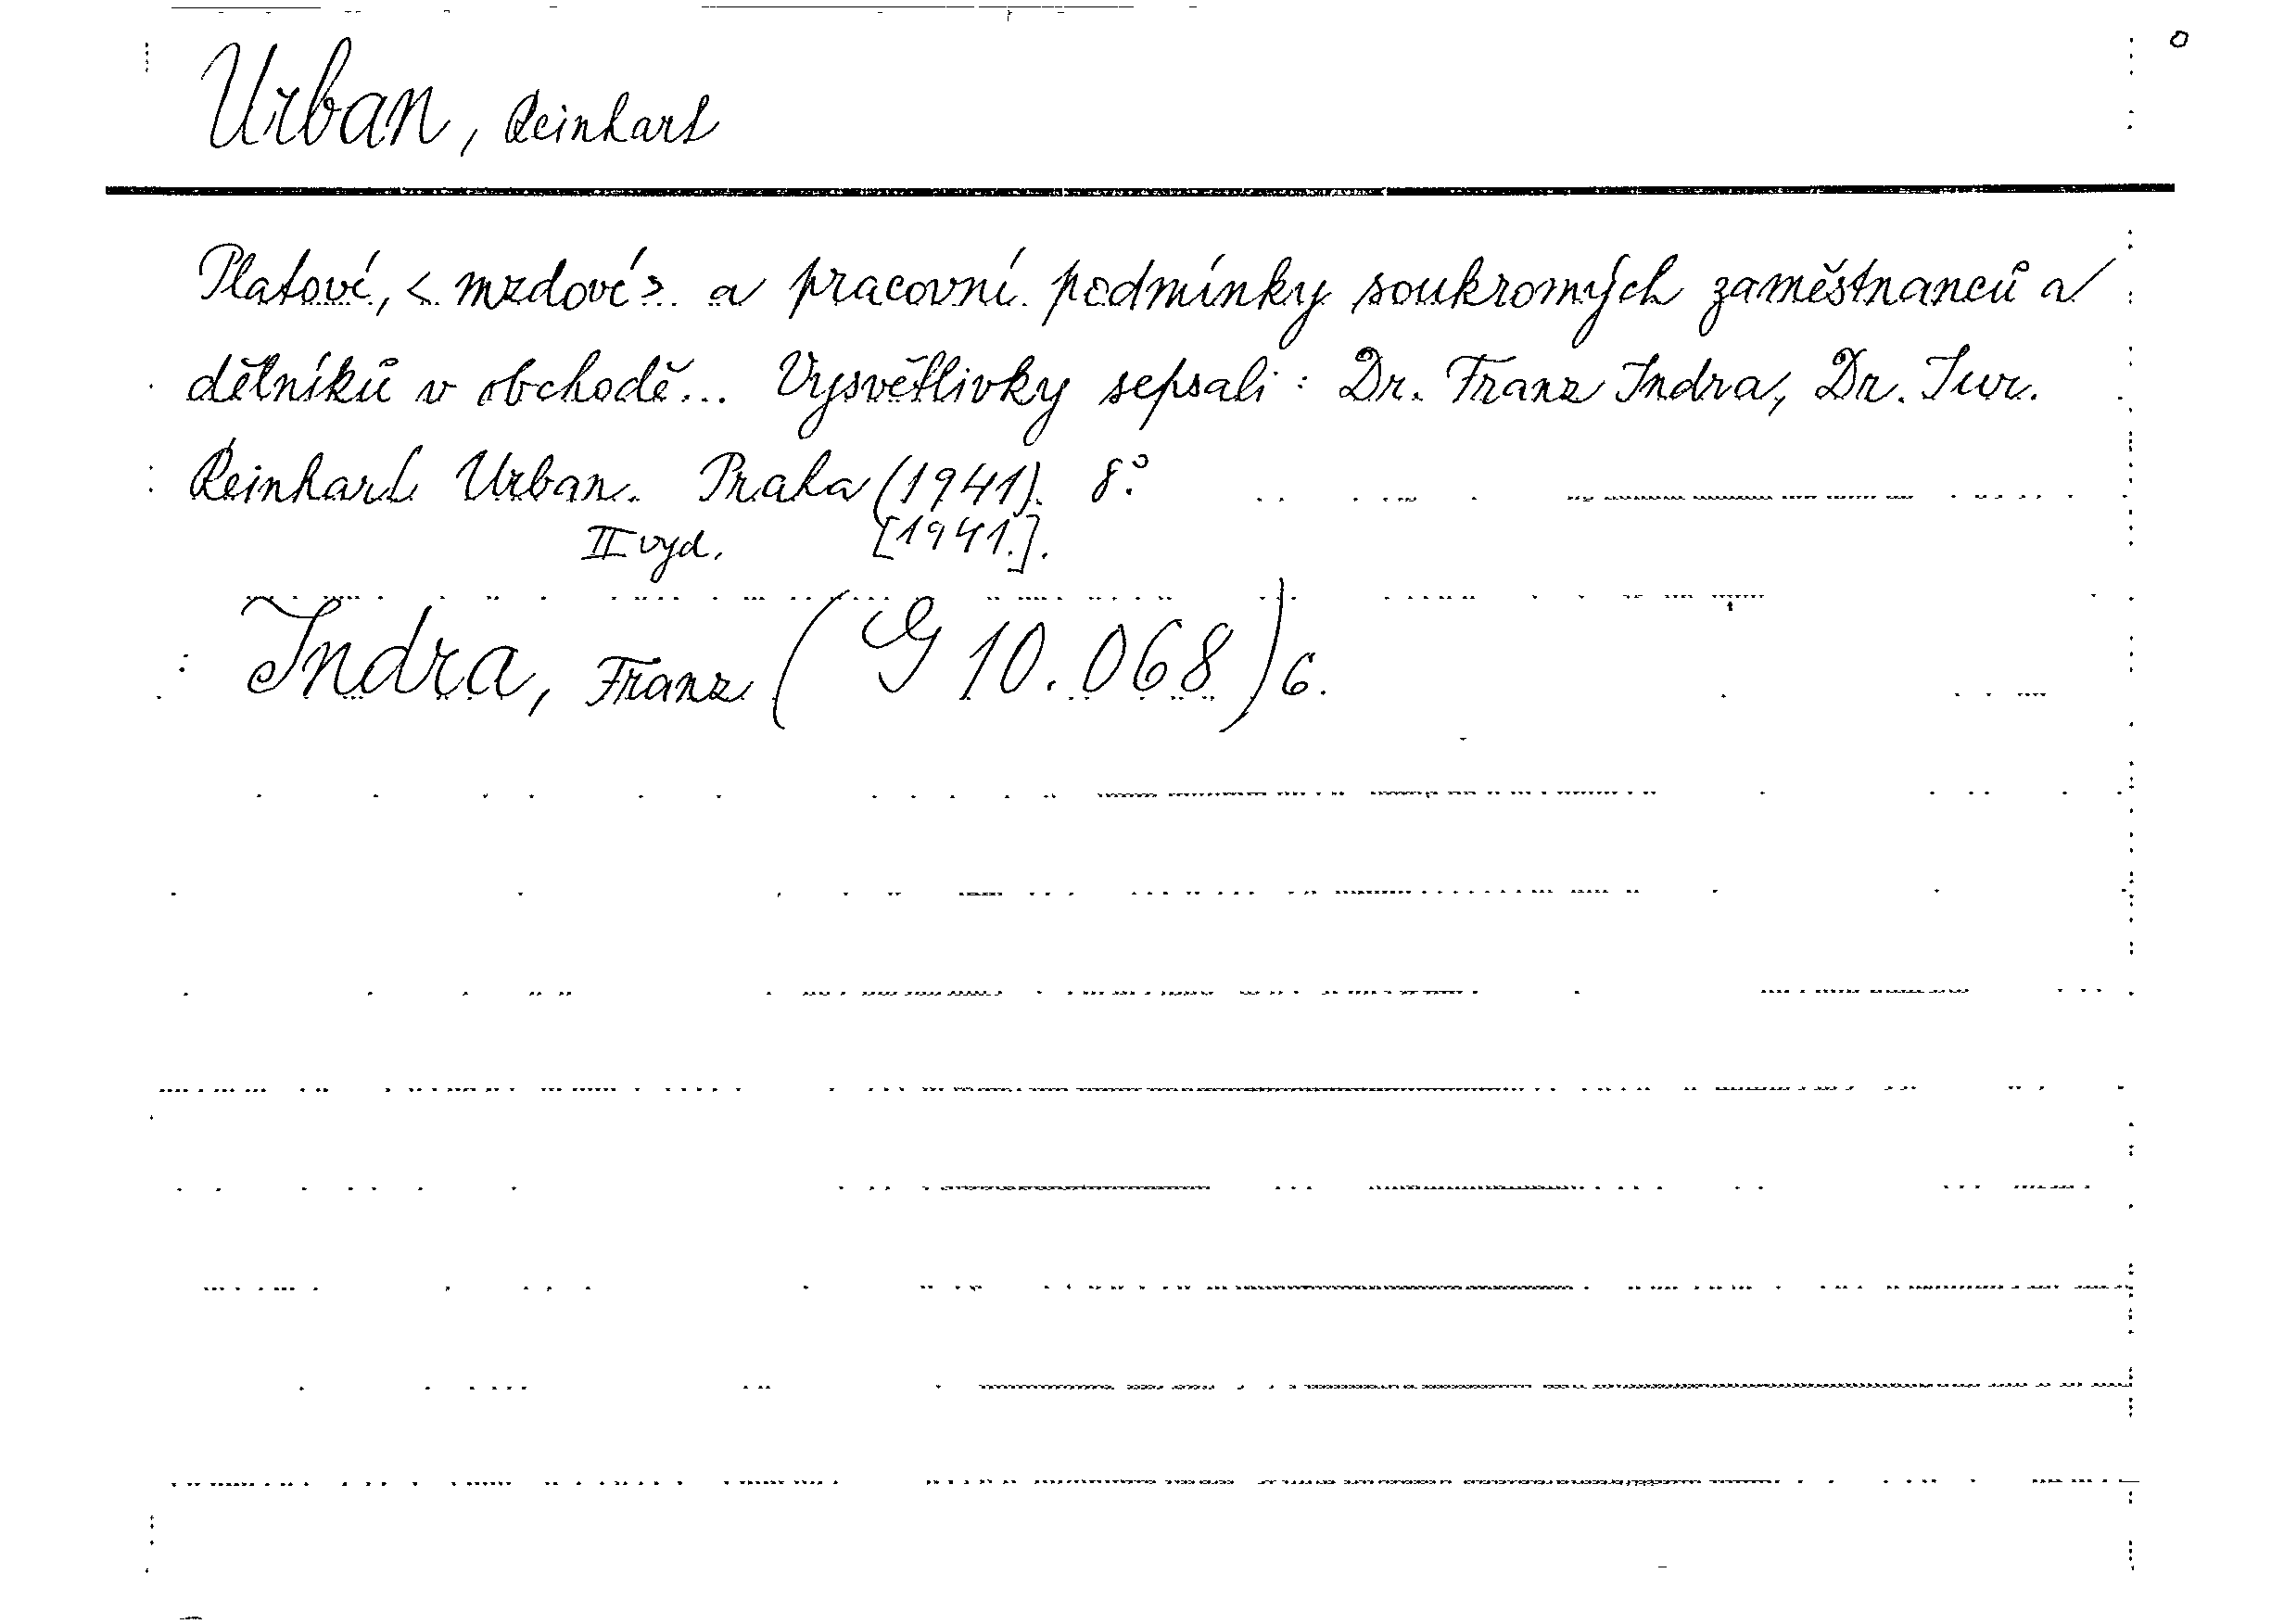 Urban, Reinhart
Platové, < mzdové > a pracovní podmínky soukromých zaměstnanců a
dělníků v obchodě... Vysvětlivky sepsali: Dr. Franz Indra, Dr. Jur.
Reinhart Urban. Praha (1941). 8°
II vyd. [1941.].
Indra, Franz (G 10.068) 6.